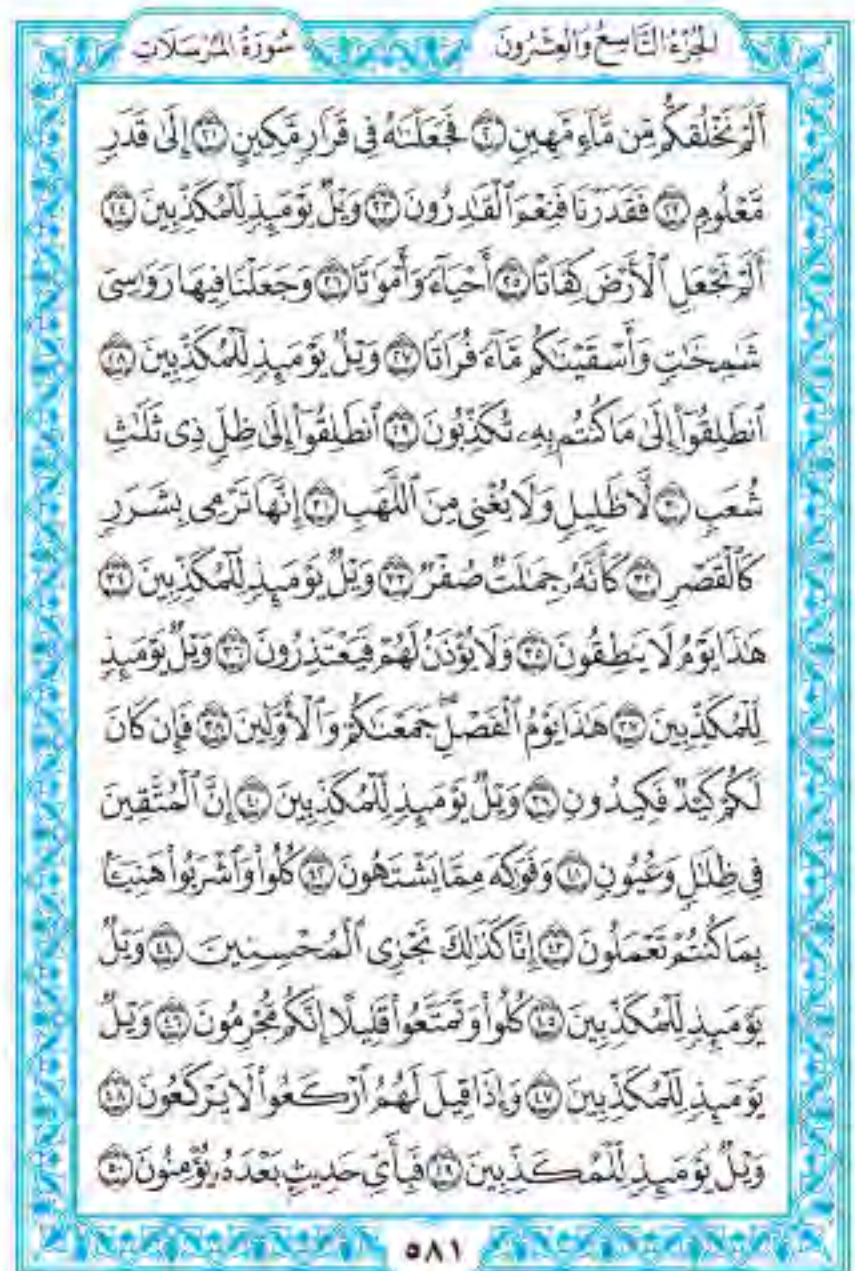 الجُزْءُ التَّاسِعُ وَالْعِشْرُونَ سُورَةُ المُرْسَلَاتِ
أَلَمْ نَخْلُقكُّم مِّن مَّآءٖ مَّهِينٖ ٢٠ فَجَعَلۡنَٰهُ فِي قَرَارٖ مَّكِينٍ ٢١ إِلَىٰ قَدَرٖ
مَّعۡلُومٖ ٢٢ فَقَدَرۡنَا فَنِعۡمَ ٱلۡقَٰدِرُونَ ٢٣ وَيۡلٞ يَوۡمَئِذٖ لِّلۡمُكَذِّبِينَ ٢٤
أَلَمۡ نَجۡعَلِ ٱلۡأَرۡضَ كِفَاتًا ٢٥ أَحۡيَآءٗ وَأَمۡوَٰتٗا ٢٦ وَجَعَلۡنَا فِيهَا رَوَٰسِيَ
شَٰمِخَٰتٖ وَأَسۡقَيۡنَٰكُم مَّآءٗ فُرَاتٗا ٢٧ وَيۡلٞ يَوۡمَئِذٖ لِّلۡمُكَذِّبِينَ ٢٨
ٱنطَلِقُوٓاْ إِلَىٰ مَا كُنتُم بِهِۦ تُكَذِّبُونَ ٢٩ ٱنطَلِقُوٓاْ إِلَىٰ ظِلّٖ ذِي ثَلَٰثِ
شُعَبٖ ٣٠ لَّا ظَلِيلٖ وَلَا يُغۡنِي مِنَ ٱللَّهَبِ ٣١ إِنَّهَا تَرۡمِي بِشَرَرٖ
كَٱلۡقَصۡرِ ٣٢ كَأَنَّهُۥ جِمَٰلَتٞ صُفۡرٞ ٣٣ وَيۡلٞ يَوۡمَئِذٖ لِّلۡمُكَذِّبِينَ ٣٤
هَٰذَا يَوۡمُ لَا يَنطِقُونَ ٣٥ وَلَا يُؤۡذَنُ لَهُمۡ فَيَعۡتَذِرُونَ ٣٦ وَيۡلٞ يَوۡمَئِذٖ
لِّلۡمُكَذِّبِينَ ٣٧ هَٰذَا يَوۡمُ ٱلۡفَصۡلِۖ جَمَعۡنَٰكُمۡ وَٱلۡأَوَّلِينَ ٣٨ فَإِن كَانَ
لَكُمۡ كَيۡدٞ فَكِيدُونِ ٣٩ وَيۡلٞ يَوۡمَئِذٖ لِّلۡمُكَذِّبِينَ ٤٠ إِنَّ ٱلۡمُتَّقِينَ
فِي ظِلَٰلٖ وَعُيُونٖ ٤١ وَفَوَٰكِهَ مِمَّا يَشۡتَهُونَ ٤٢ كُلُواْ وَٱشۡرَبُواْ هَنِيٓـَٔۢا
بِمَا كُنتُمۡ تَعۡمَلُونَ ٤٣ إِنَّا كَذَٰلِكَ نَجۡزِي ٱلۡمُحۡسِنِينَ ٤٤ وَيۡلٞ
يَوۡمَئِذٖ لِّلۡمُكَذِّبِينَ ٤٥ كُلُواْ وَتَمَتَّعُواْ قَلِيلًا إِنَّكُم مُّجۡرِمُونَ ٤٦ وَيۡلٞ
يَوۡمَئِذٖ لِّلۡمُكَذِّبِينَ ٤٧ وَإِذَا قِيلَ لَهُمُ ٱرۡكَعُواْ لَا يَرۡكَعُونَ ٤٨
وَيۡلٞ يَوۡمَئِذٖ لِّلۡمُكَذِّبِينَ ٤٩ فَبِأَيِّ حَدِيثِۭ بَعۡدَهُۥ يُؤۡمِنُونَ ٥٠
٥٨١